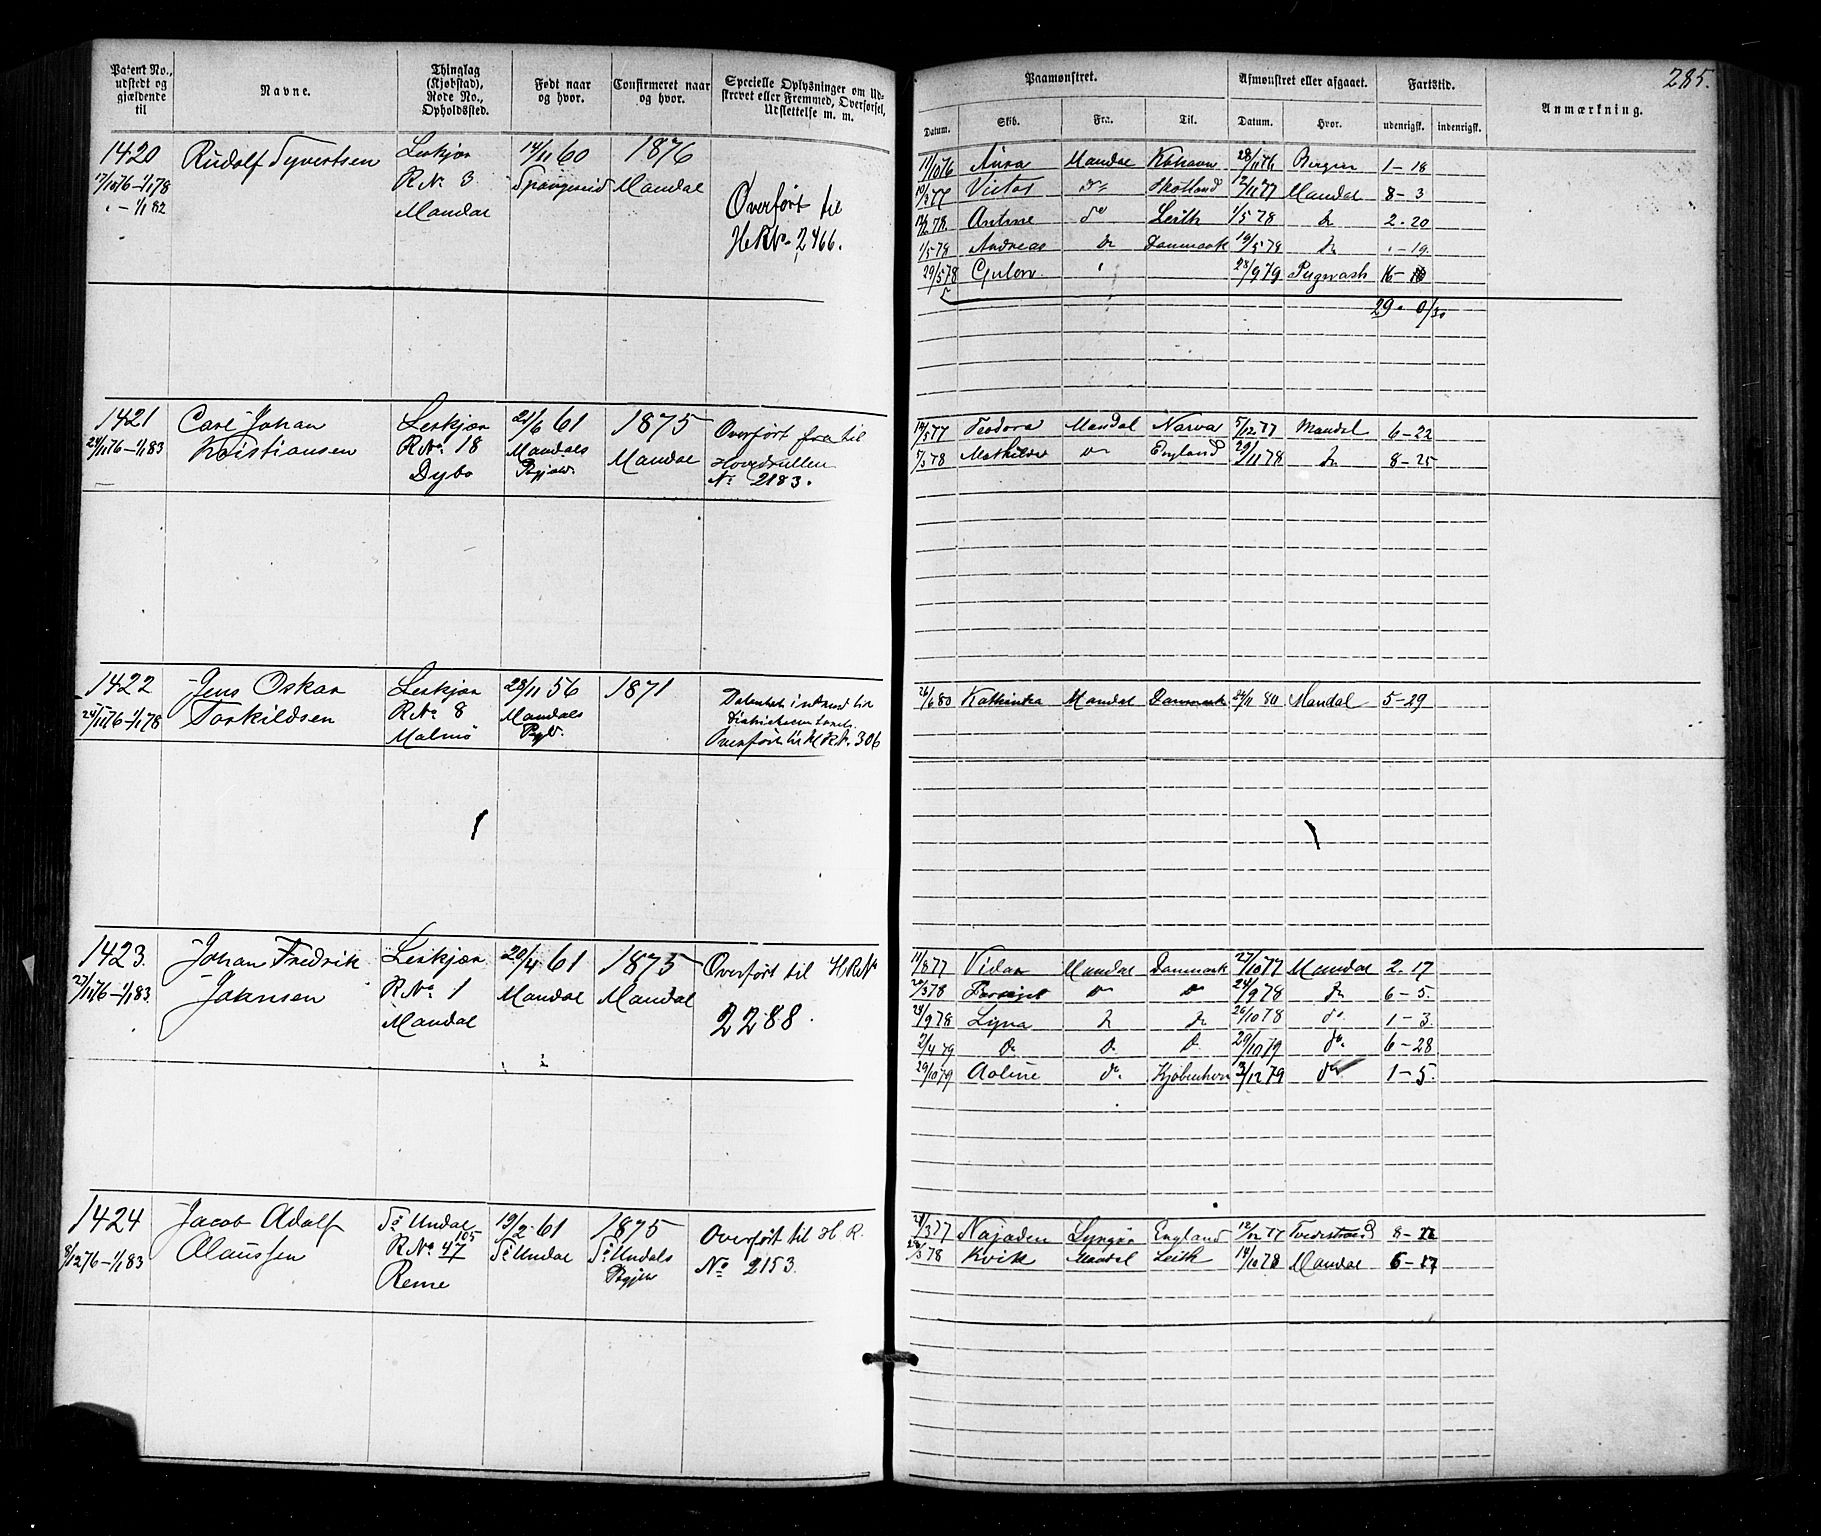 Patent No., udstedt og gjældende til
Navne.
Thinglag (Kjøbstad), Rode No., Opholdssted.
Født naar og hvor.
Confirmeret naar og hvor.
Specielle Oplysninger om Udskrevet eller Fremmed, Overførsel, Udslettelse m. m.
1420
17/10 76 – 1/1 78
" – 1/1 82
Rudolf Syvertsen
Leskjær
R No 3
Mandal
14/11 60
Spangereid
1876
Mandal
Overført til
HRNo 2466.
1421
24/11 76 – 1/1 83
Carl Johan
Kristiansen
Leskjær
R No 18
Dybo
21/6 61
Mandals
Prgjæld
1875
Mandal
Overført fra til
Hovedrullen
No 2183.
1422
24/11 76 – 1/1 78
Jens Oskar
Torkildsen
Leskjær
R No 8
Malmø
28/11 56
Mandals
Prgld.
1871
Overført til H R No 306
1423.
27/11 76 – 1/1 83
Johan Fredrik
Jakobsen
Leskjær
R No 1
Mandal
20/4 61
Mandal
1875
Mandal
Overført til H R No
2288.
1424
8/12 76 – 1/1 83
Jacob Adolf
Olaussen
Sø Undal
R No 47 105
Reme
19/2 61
Sø Undal
1875
Sø Undals
Prgjæld
Overført til H R.
No 2153.
285.
Paamønstret.
Afmønstret eller afgaaet.
Fartstid.
Anmærkning.
Datum.
Skib.
Fra.
Til.
Datum.
Hvor.
udenrigsk.
indenrigsk.
11/10 76 Aura Mandal Kbhavn 28/11 76 Bergen 1 – 18
10/3 77 Victor do Skotland 12/11 77 Mandal 8 – 3
78 Antine do Leith 1/5 78 do 2 – 20
1/5 78 Andreas do Danmark 19/5 78 do " – 19
29/5 78 " 28/9 79 Pugwash 16 –
29 " 0/30
14/5 77 Teodora Mandal Narva 5/12 77 Mandal 6 – 22
7/3 78 Mathilde do England 78 do 8 – 25
26/6 80 Kathinka Mandal Danmark 24/11 80 Mandal 5 – 29
11/8 77 Vidar Mandal Danmark 27/10 77 Mandal 2 – 17
20/3 78 do do 24/9 78 do 6 – 5.
23/9 78 Ligna do do 26/10 78 do 1 – 3.
2/4 79 do do do 29/10 79 do 6 – 28
29/10 79 Aoline do Kjøbenhavn 3/12 79 do 1 – 5.
77 Najaden Lyngør England 12/12 77 Tvedestrand 8 –
78 Kvik Mandal Leith 14/10 78 Mandal 6 – 17